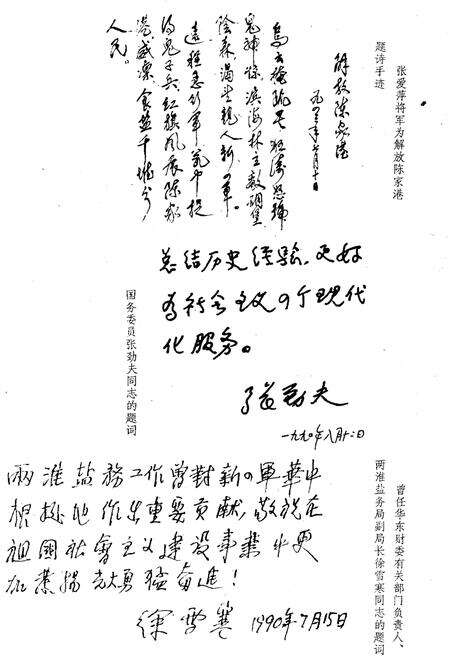 张爱萍将军为解放陈家港
题诗手迹
解放陈家港
乌云掩疏星 狂涛怒号
鬼神惊 滨海林立敌碉堡
阴森 渴望亲人新四军。
远程急行军 瓮中捉
得鬼子兵 红旗风展陈家
港 威凛 食盐千堆分
人民。
总结历史经验,更好
为社会主义四个现代
化服务。
张劲夫
一九九〇年八月十二日
国务委员张劲夫同志的题词
兩淮盐務工作曾對新四軍華中
根据地作出重要贡献,敬祝在
祖國社會主义建设事業中更
加發揚光大勇猛奋進!
徐雪寒 1990年7月15日
曾任华东财委有关部门负责人、
两淮盐务局副局长徐雪寒同志的题词